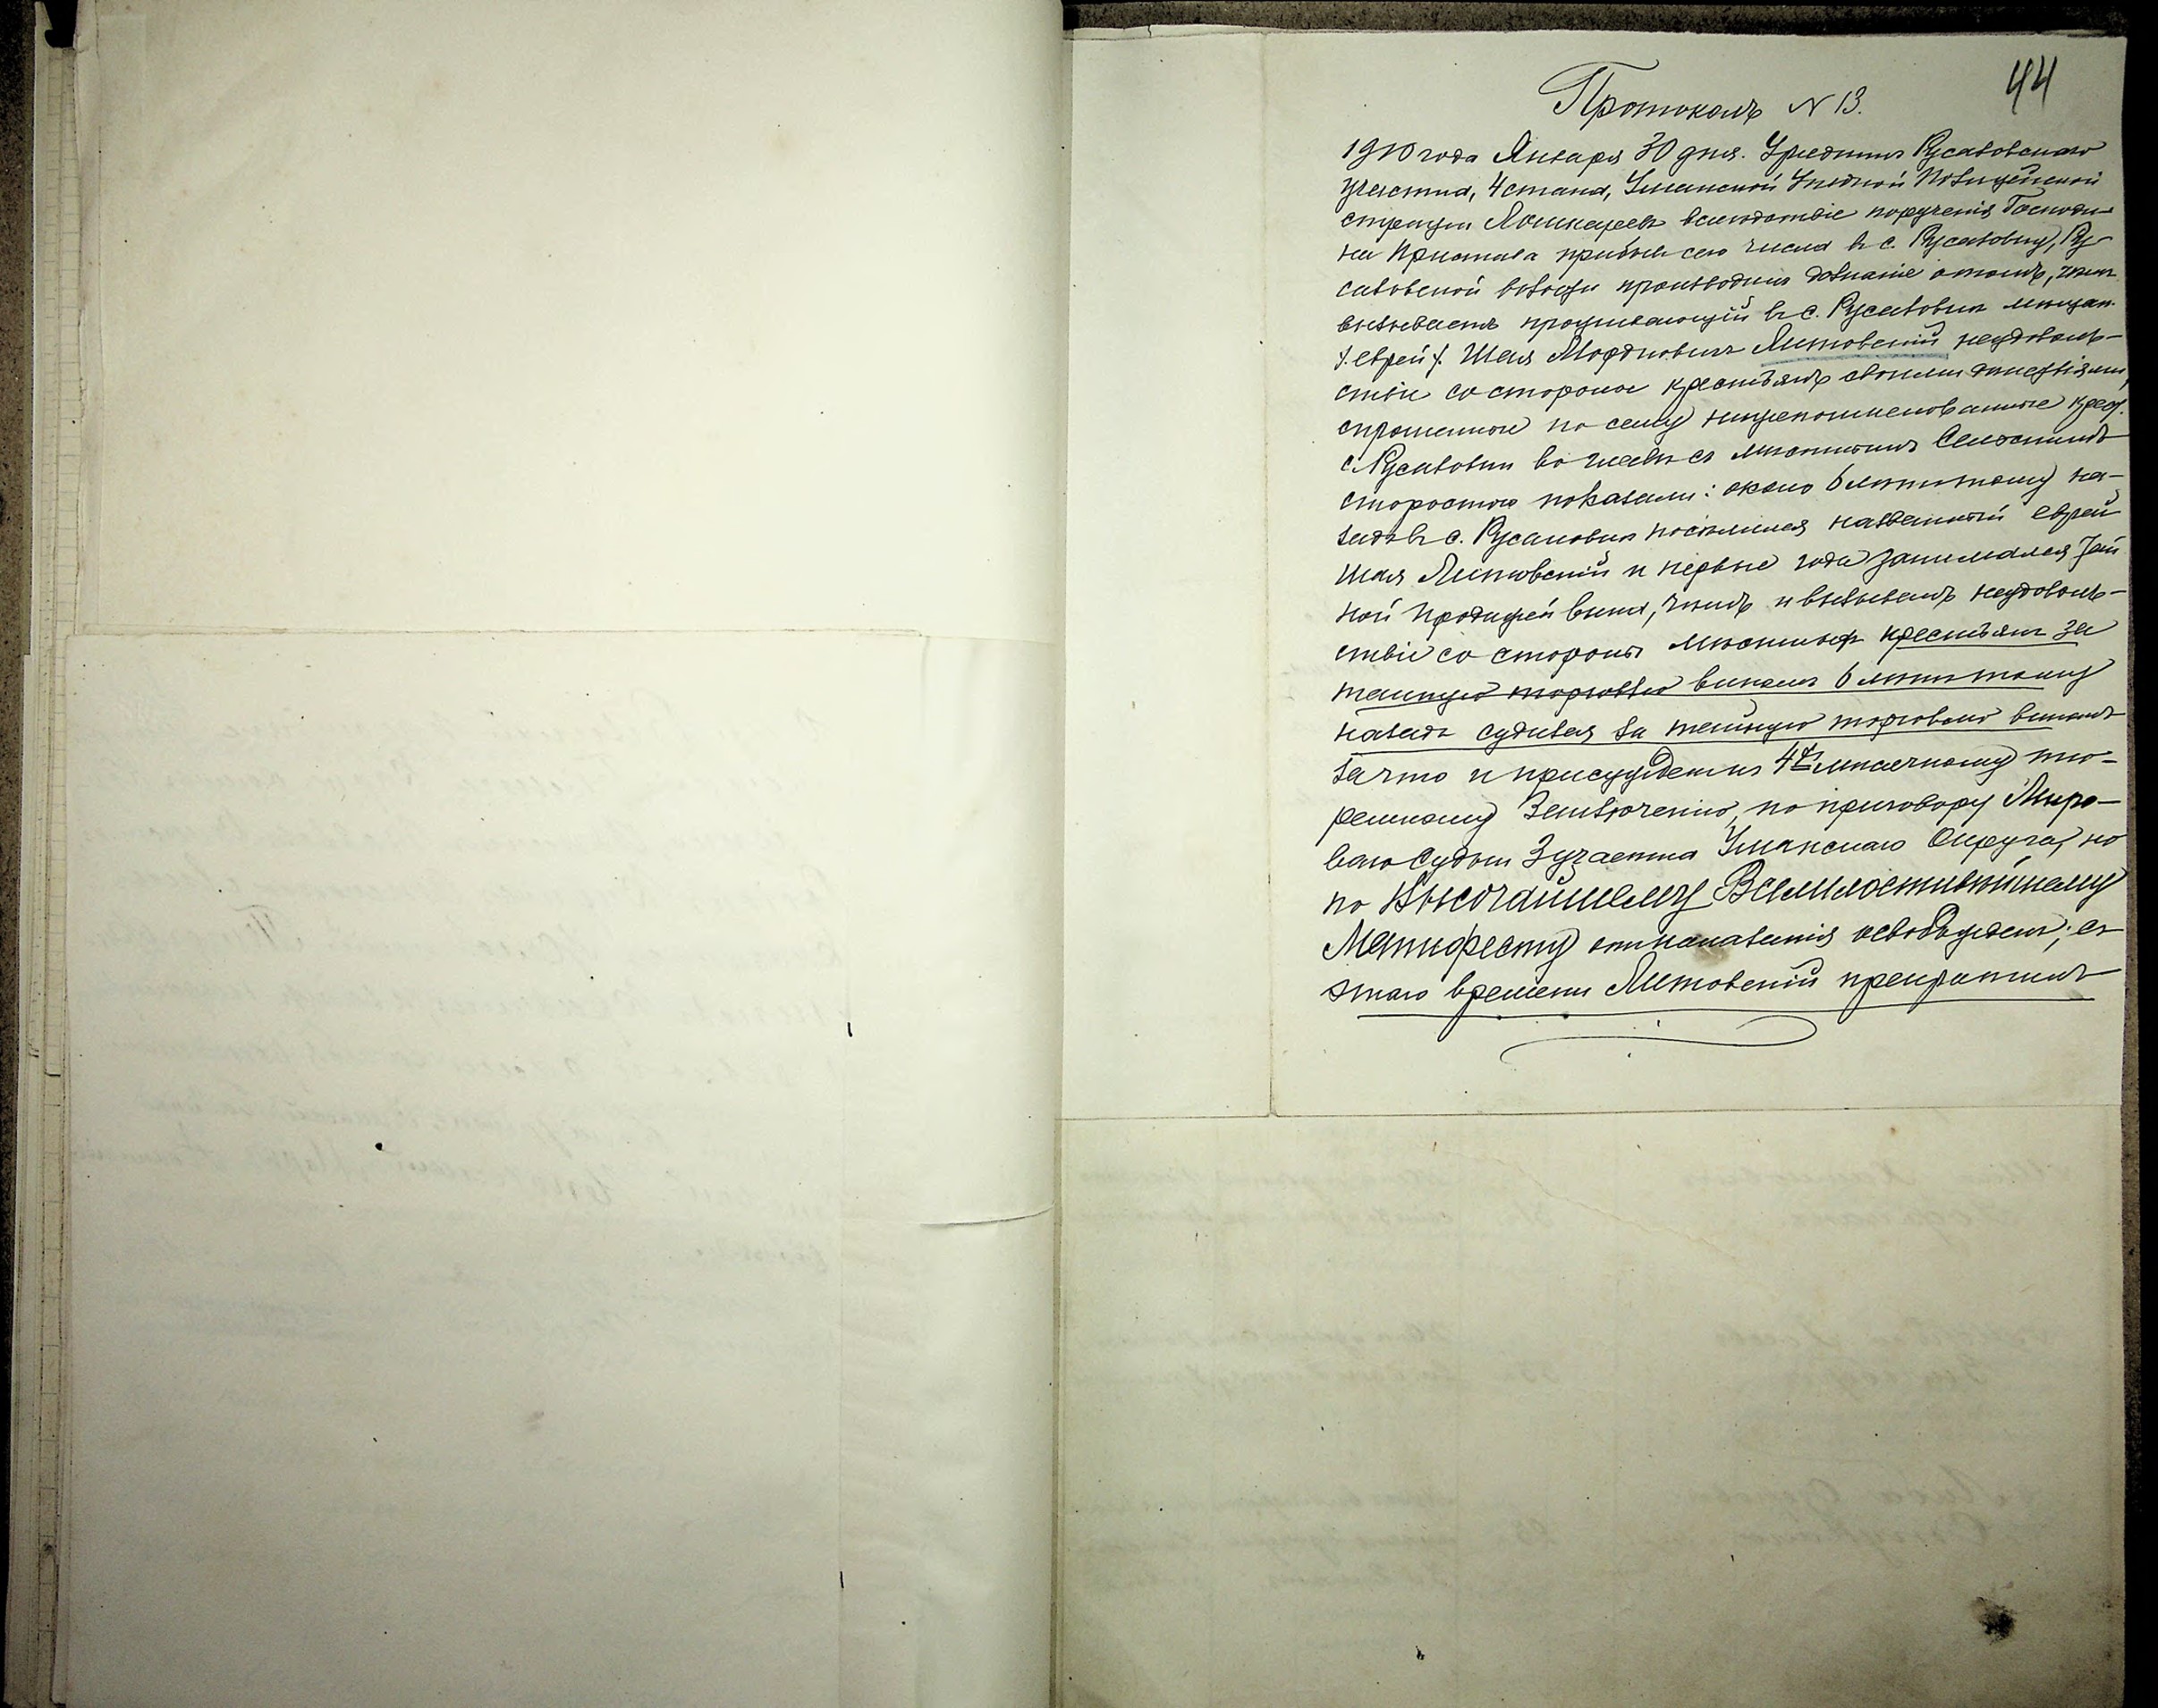 44
Протоколъ N 13.
1910 года Января 30 дня. Урядникъ Русаловскаго
участка, 4 стана, Уманской Уѣздной Полицейской
стражи вслѣдствіе порученія Господи-
на Пристава прибылъ сего числа въ с. Русаловку, Ру-
саловской волости производилъ дознаніе о томъ, чѣмъ
вызываетъ проживающій въ с. Русаловкѣ мѣщан.
/. еврей ./ Шая Мордковичъ Литовскій неудоволь-
ствіе со стороны крестьянъ своими дѣйствіями,
спрошенные по сему нижепоименованные крест.
с. Русаловки во главѣ съ мѣстнымъ Сельскимъ
старостою показали: около 6 лѣтъ тому на-
задъ въ с. Русаловкѣ поселился названный еврей
Шая Литовскій и первые года занимался тай
ной продажей вина, чѣмъ и вызывалъ неудоволь-
ствіе со стороны мѣстныхъ крестьянъ за
тайную торговлю виномъ 6 лѣтъ тому
назадъ судился за тайную торговлю виномъ
за что и присужденъ къ 4хъ мѣсячному тю-
ремному Заключенію, по приговору Миро-
ваго Судьи 3 участка Уманскаго Округа, но
по Высочайшему Всемилостивѣйшему
Манифесту отъ наказанія освобожденъ; съ
этаго времени Литовскій прекратилъ